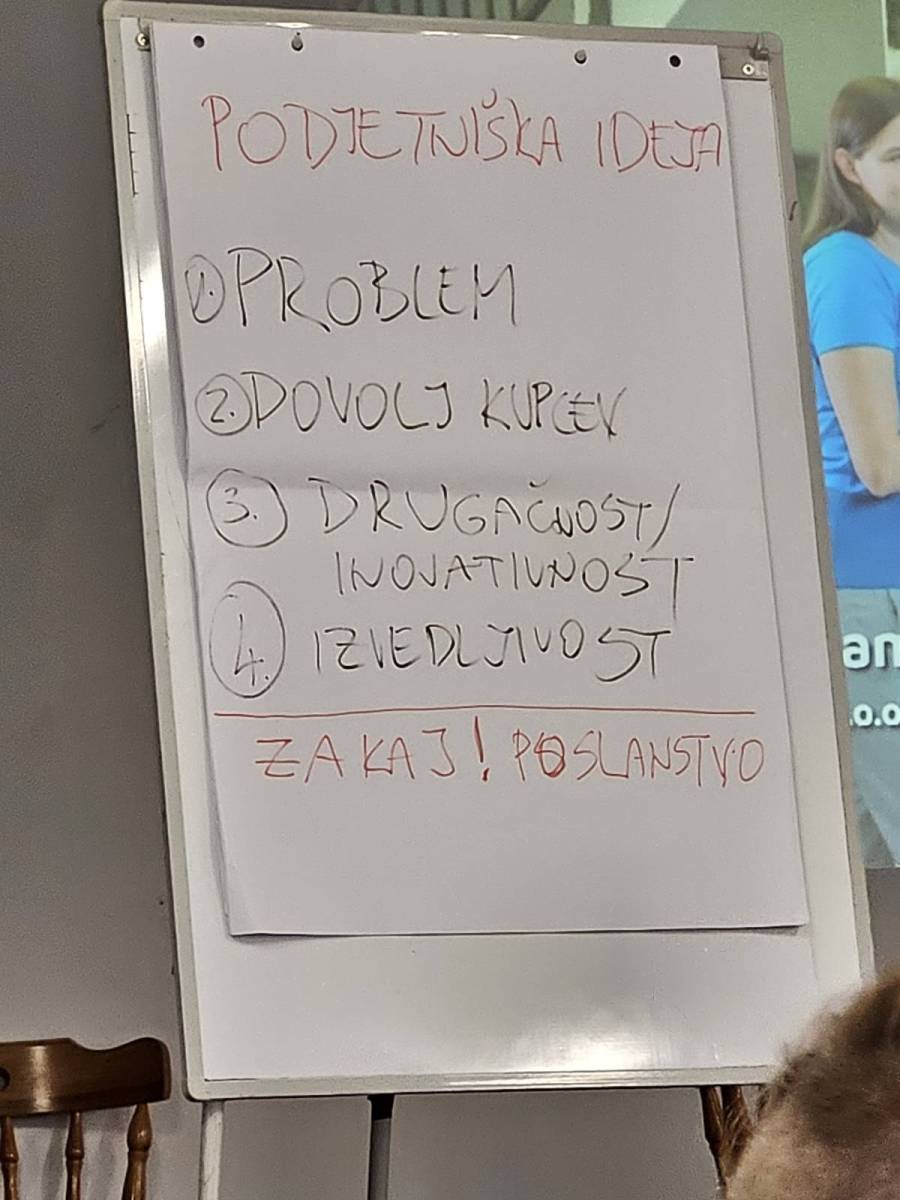 PODJETNIŠKA IDEJA
1. PROBLEM
2. DOVOLJ KUPCEV
3. DRUGAČNOST/
INOVATIVNOST
4. IZVEDLJIVOST
ZAKAJ! POSLANSTVO
an
.o.o